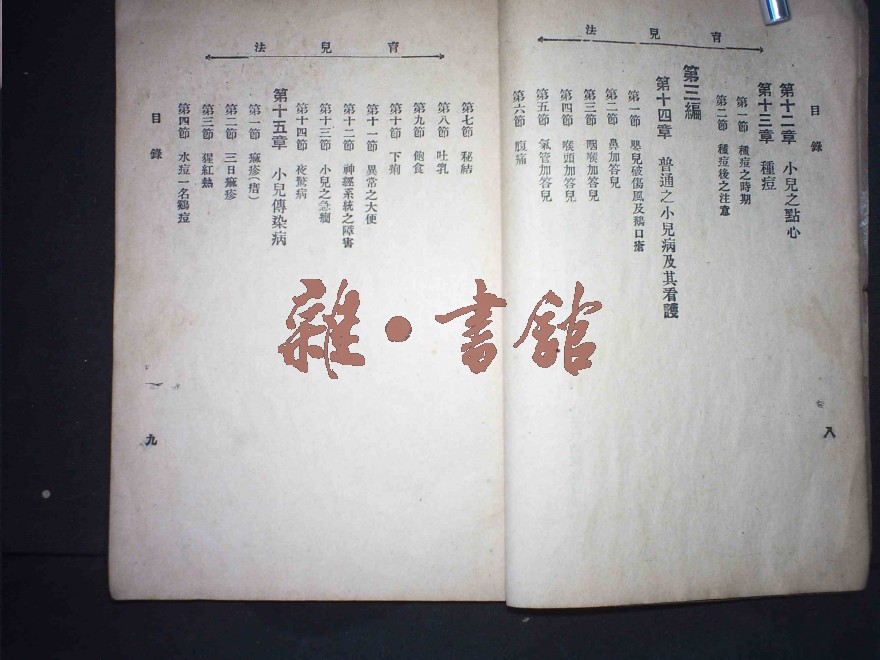 育兒法
目錄
第十二章 小兒之點心
第十三章 種痘
第一節 種痘之時期
第二節 種痘後之注意
第三編
第十四章 普通之小兒病及其看護
第一節 嬰兒破傷風及鵝口瘡
第二節 鼻加答兒
第三節 咽喉加答兒
第四節 喉頭加答兒
第五節 氣管加答兒
第六節 腹痛
八
育兒法
第七節 秘結
第八節 吐乳
第九節 飽食
第十節 下痢
第十一節 異常之大便
第十二節 神經系統之障害
第十三節 小兒之急癇
第十四節 夜驚病
第十五章 小兒傳染病
第一節 痲疹(瘄)
第二節 三日痲疹
第三節 猩紅熱
第四節 水痘一名鷄痘
目錄
九
雜·書館